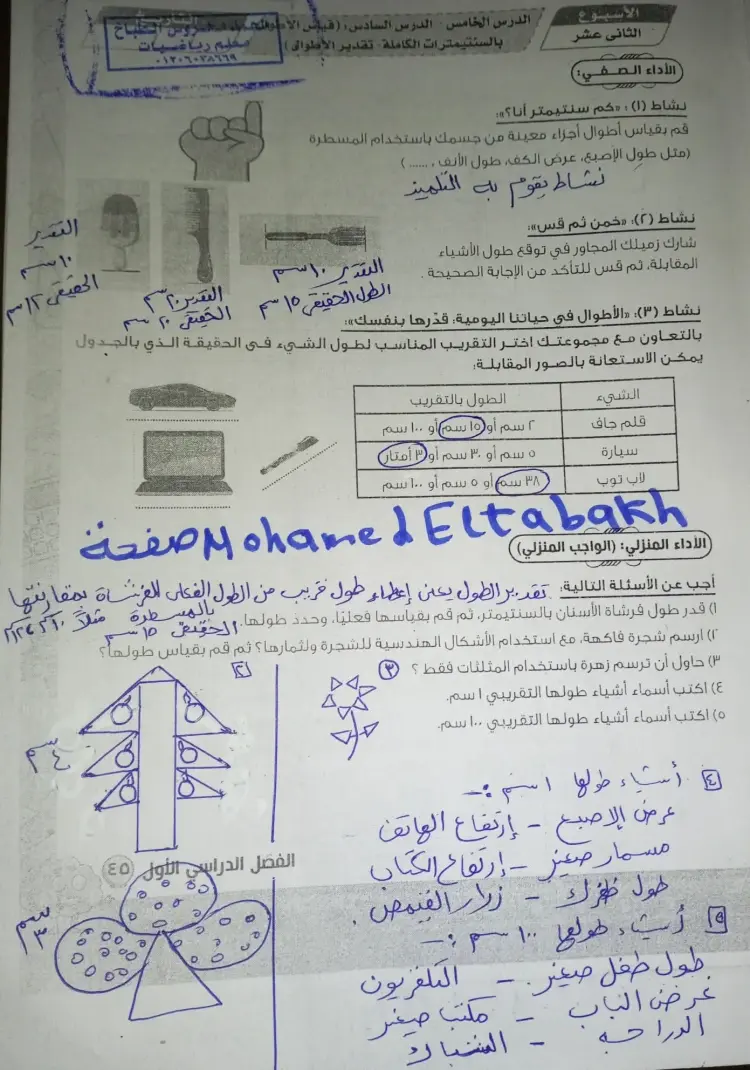 الأسبوع
الثاني عشر
الدرس الخامس - الدرس السادس: (قياس الأطوال
بالسنتيمترات الكاملة - تقدير الأطوال)
معلم رياضيات
الأداء الصفي:
نشاط (١): «كم سنتيمتر أنا؟»:
قم بقياس أطوال أجزاء معينة من جسمك باستخدام المسطرة
(مثل طول الإصبع، عرض الكف، طول الأنف، ......)
نشاط يقوم به التلميذ
نشاط (٢): «خمن ثم قس»:
شارك زميلك المجاور في توقع طول الأشياء
المقابلة، ثم قس للتأكد من الإجابة الصحيحة.
التقدير ١٠ سم
الطول الحقيقي ١٥ سم
التقدير ٢٠ سم
الحقيقي ٢٠ سم
التقدير
١٠ سم
الحقيقي ١٢ سم
نشاط (٣): «الأطوال في حياتنا اليومية: قدّرها بنفسك»:
بالتعاون مع مجموعتك اختر التقريب المناسب لطول الشيء في الحقيقة الذي بالجدول
يمكن الاستعانة بالصور المقابلة:
الشيء الطول بالتقريب
قلم جاف ٢ سم أو ١٥ سم أو ١٠٠ سم
سيارة ٥ سم أو ٣٠ سم أو ٣ أمتار
لاب توب ٣٨ سم أو ٥ سم أو ١٠٠ سم
صفحة Mohamed Eltabakh
الأداء المنزلي: (الواجب المنزلي)
أجب عن الأسئلة التالية:
تقدير الطول يعني إعطاء طول قريب من الطول الفعلي للفرشاة بمقارنتها
بالمسطرة مثلاً
١) قدر طول فرشاة الأسنان بالسنتيمتر، ثم قم بقياسها فعليًا، وحدد طولها.
الحقيقي ١٥ سم
٢) ارسم شجرة فاكهة، مع استخدام الأشكال الهندسية للشجرة ولثمارها؟ ثم قم بقياس طولها؟
٣) حاول أن ترسم زهرة باستخدام المثلثات فقط ؟
٤) اكتب أسماء أشياء طولها التقريبي ١ سم.
٥) اكتب أسماء أشياء طولها التقريبي ١٠٠ سم.
٢
٣
٤ سم
٤ أشياء طولها ١ سم :-
عرض الإصبع - إرتفاع الهاتف
مسمار صغير - إرتفاع الكتاب
طول ظفرك - زرار القميص.
٥ أشياء طولها ١٠٠ سم :-
طول طفل صغير - التلفزيون
عرض الباب - مكتب صغير
الدراجة - الشباك
الفصل الدراسي الأول ٤٥
٣ سم